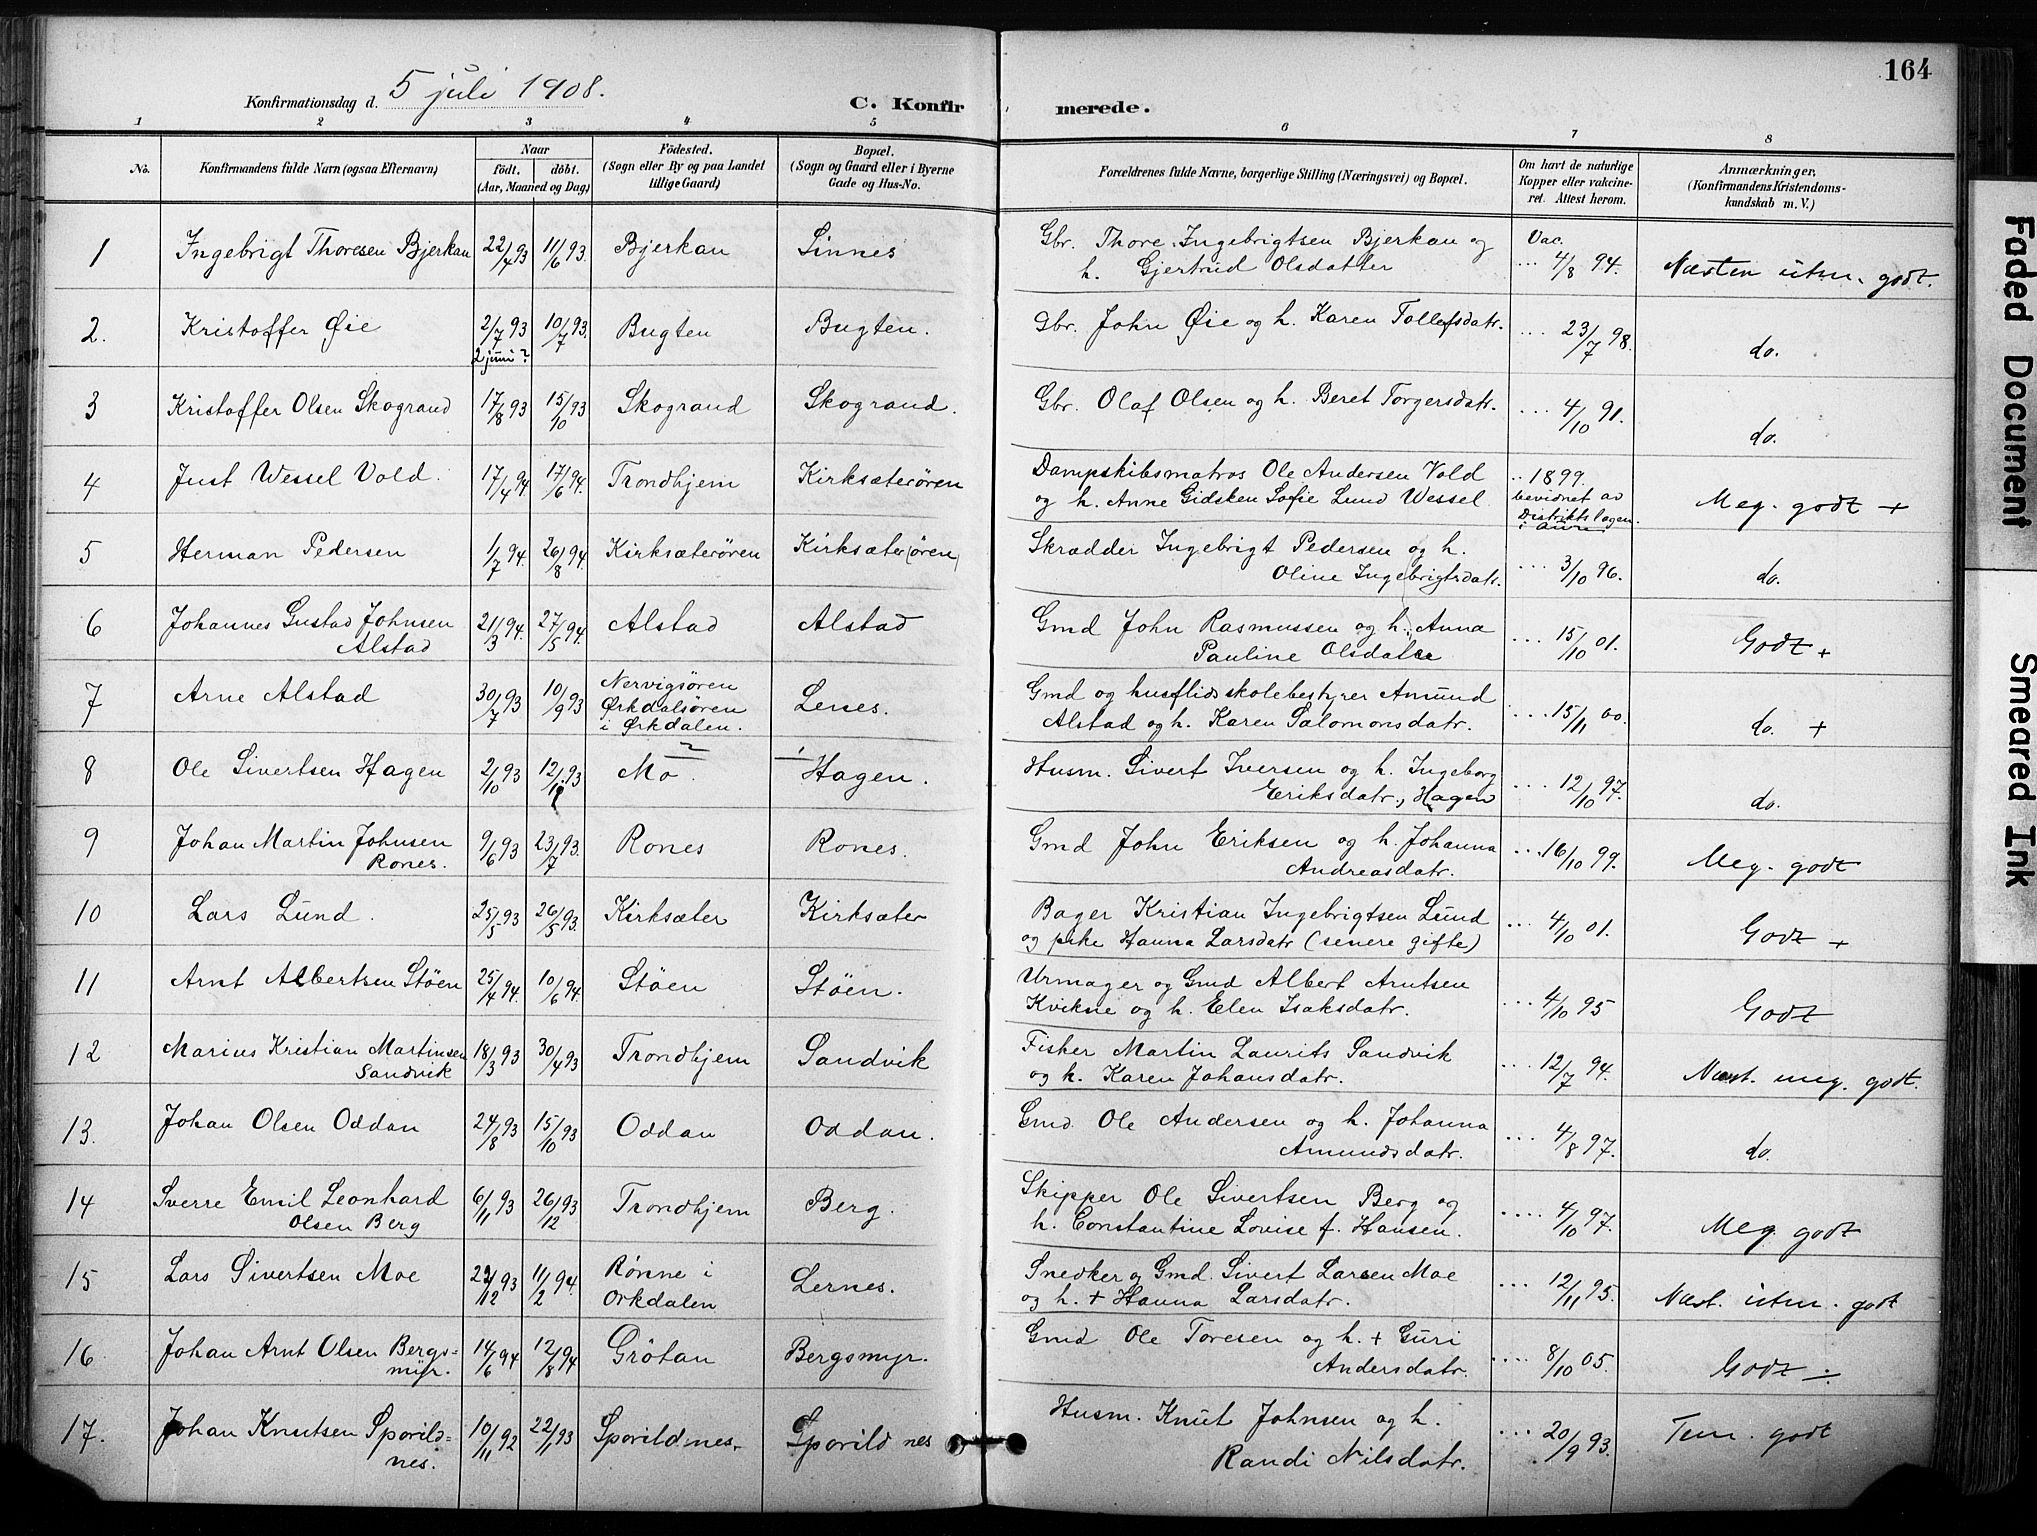 164
Konfirmationsdag d. 5 juli 1908.
C. Konfir merede.
1 2 3 4 5 6 7 8
No.
Konfirmandens fulde Navn (ogsaa Efternavn)
Naar
födt. döbt.
(Aar, Maaned og Dag)
Födested.
(Sogn eller By og paa Landet
tillige Gaard)
Bopæl.
(Sogn og Gaard eller i Byerne
Gade og Hus-No.
Forældrenes fulde Navne, borgerlige Stilling (Næringsvei) og Bopæl.
Om havt de naturlige
Kopper eller vakcine-
ret. Attest herom.
Anmærkninger,
(Konfirmandens Kristendoms-
kundskab m. V.)
1 Ingebrigt Thoresen Bjerkan 22/4 93 11/6 93. Bjerkan Sinnes Gbr. Thore Ingebrigtsen Bjerkan og Vac.
h. Gjertrud Olsdatter ... 4/8 94. Næsten utm. godt.
2. Kristoffer Øie 2/7 93 10/7 93. Bugten Bugten. Gbr. John Øie og h. Karen Tollefsdatr. ... 23/7 98. do.
2 juni?
3 Kristoffer Olsen Skogrand 17/8 93 15/10 93 Skogrand Skogrand. Gbr. Olaf Olsen og h. Beret Torgersdatr. ... 4/10 91. do.
4 Just Wessel Vold. 17/4 94 17/6 94. Trondhjem Kirksæterören Dampskibsmatros Ole Andersen Vold .. 1899.
og h. Anne Gidsken Sofie Lund Wessel bevidnet av Meg. godt +
Distriktslægen
i Aure.
5 Herman Pedersen 1/7 94. 26/8 94. Kirksæterören Kirksæter(ören) Skrædder Ingebrigt Pedersen og h.
Oline Ingebrigtsdatr. ... 3/10 96. do.
6 Johannes Gustad Johnsen 21/3 94. 27/5 94. Alstad Alstad Gmd John Rasmussen og h. Anna ... 15/10 01. Godt +
Alstad Pauline Olsdatter
7 Arne Alstad 30/7 93 10/9 93 Nervigsören Lenes. Gmd og husflidsskolebestyrer Amund
Ørkdalsören Alstad og h. Karen Salomonsdatr. ... 15/11 00. do. +
i Ørkdalen.
8 Ole Sivertsen Hagen 2/10 93 12/11 93 Mo. Hagen. Husm. Sivert Iversen og h. Ingeborg
Eriksdatr., Hagen ... 12/10 97. do.
9 Johan Martin Johnsen 9/6 93 23/7 93. Rones Rones. Gmd John Eriksen og h. Johanna ... 16/10 99. Meg. godt
Rones. Andreasdatr.
10 Lars Lund. 25/5 93 26/5 93. Kirksæter Kirksæter Bager Kristian Ingebrigtsen Lund
og pike Hanna Larsdatr (senere gifte) ... 4/10 01. Godt +
11 Arnt Albertsen Stöen 25/4 94. 10/6 94. Stöen Stöen. Urmager og Gmd Albert Arntsen
Kvikne og h. Elen Isaksdatr. ... 4/10 95 Godt
12 Marius Kristian Martinsen 18/3 93 30/4 93 Trondhjem Sandvik Fisker Martin Laurits Sandvik
Sandvik og h. Karen Johansdatr. ... 12/7 94. Næst. meg. godt.
13. Johan Olsen Oddan 24/8 93 15/10 93 Oddan Oddan. Gmd. Ole Andersen og h. Johanna
Amundsdatr. ... 4/8 97. do.
14 Sverre Emil Leonhard 6/11 93 26/12 93 Trondhjem Berg. Skipper Ole Sivertsen Berg og
Olsen Berg h. Constantine Lovise f. Hansen. .... 4/10 97. Meg. godt
15 Lars Sivertsen Moe 22/12 93 11/2 94. Rönne i Lernes. Snedker og Gmd. Sivert Larsen Moe
Orkdalen og h. + Hanna Larsdatr. .... 12/11 95. Næst. utm. godt
16. Johan Arnt Olsen Bergs= 14/6 94 12/8 94 Grötan Bergsmyr. Gmd Ole Toresen og h. + Guri
myr. Andersdatr. .... 8/10 05. Godt ÷
17. Johan Knutsen Sporild= 10/11 92 22/1 93 Sporildnes. Sporildnes Husm. Knut Johnsen og h.
nes. Randi Nilsdatr. ... 20/9 93. Tem. godt
Faded Document
Smeared Ink